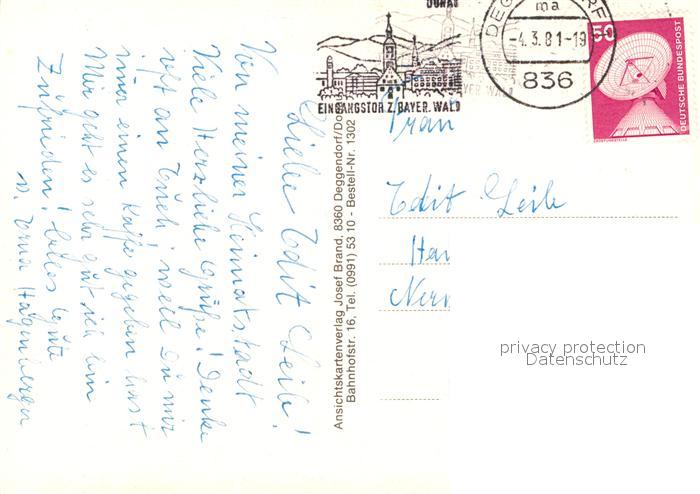 Liebe Edit Leile!
Von meiner Heimatstadt
Viele Herzliche Grüße! Denke
oft an Euch, weil Du mir
imer einen Kaffe gegeben hast
Mir geht es sehr gut ich bin
Zufrieden! Alles Gute
v. Erna Hagenberger
Ansichtskartenverlag Josef Brand, 8360 Deggendorf/Do
Bahnhofstr. 16, Tel. (0991) 53 10 - Bestell-Nr. 1302
DONAU
EINGANGSTOR Z. BAYER. WALD
DEG RF
ma
-4.3.81-19
836
50
DEUTSCHE BUNDESPOST
ERDFUNKSTELLE
Frau
Edit Leile
privacy protection
Datenschutz